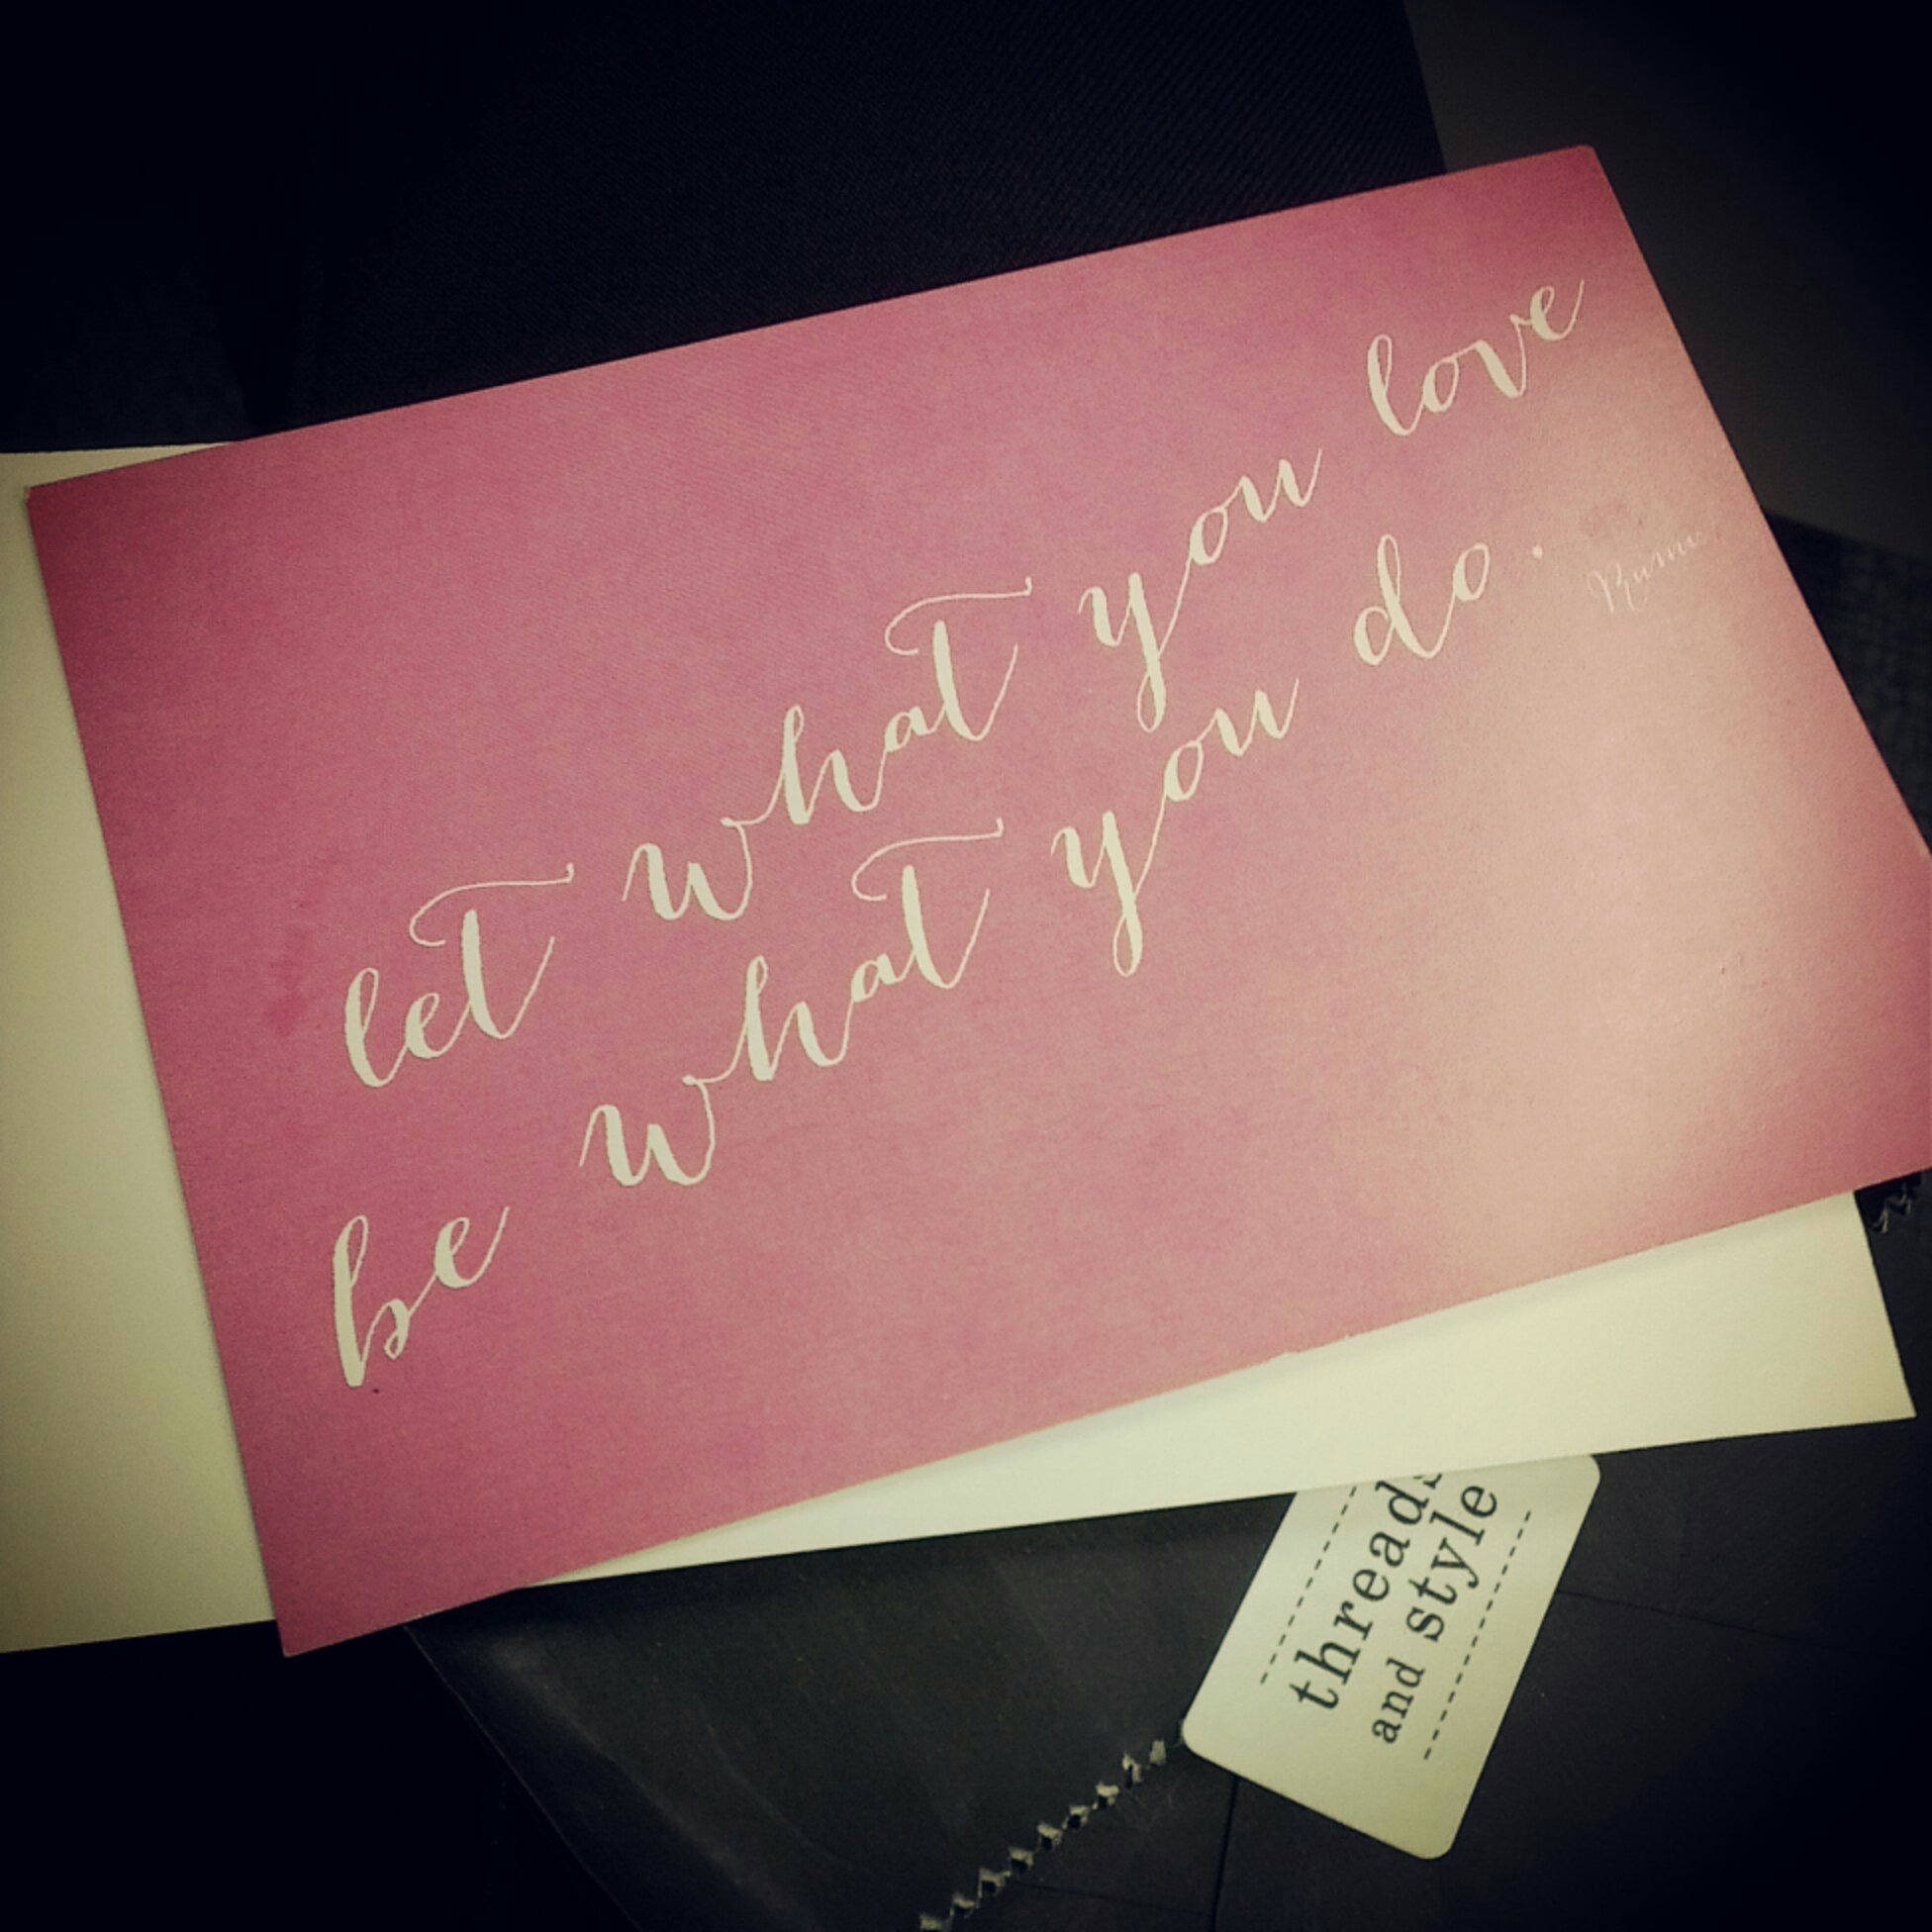 let what you love
be what you do.
Rumi
threads
and style